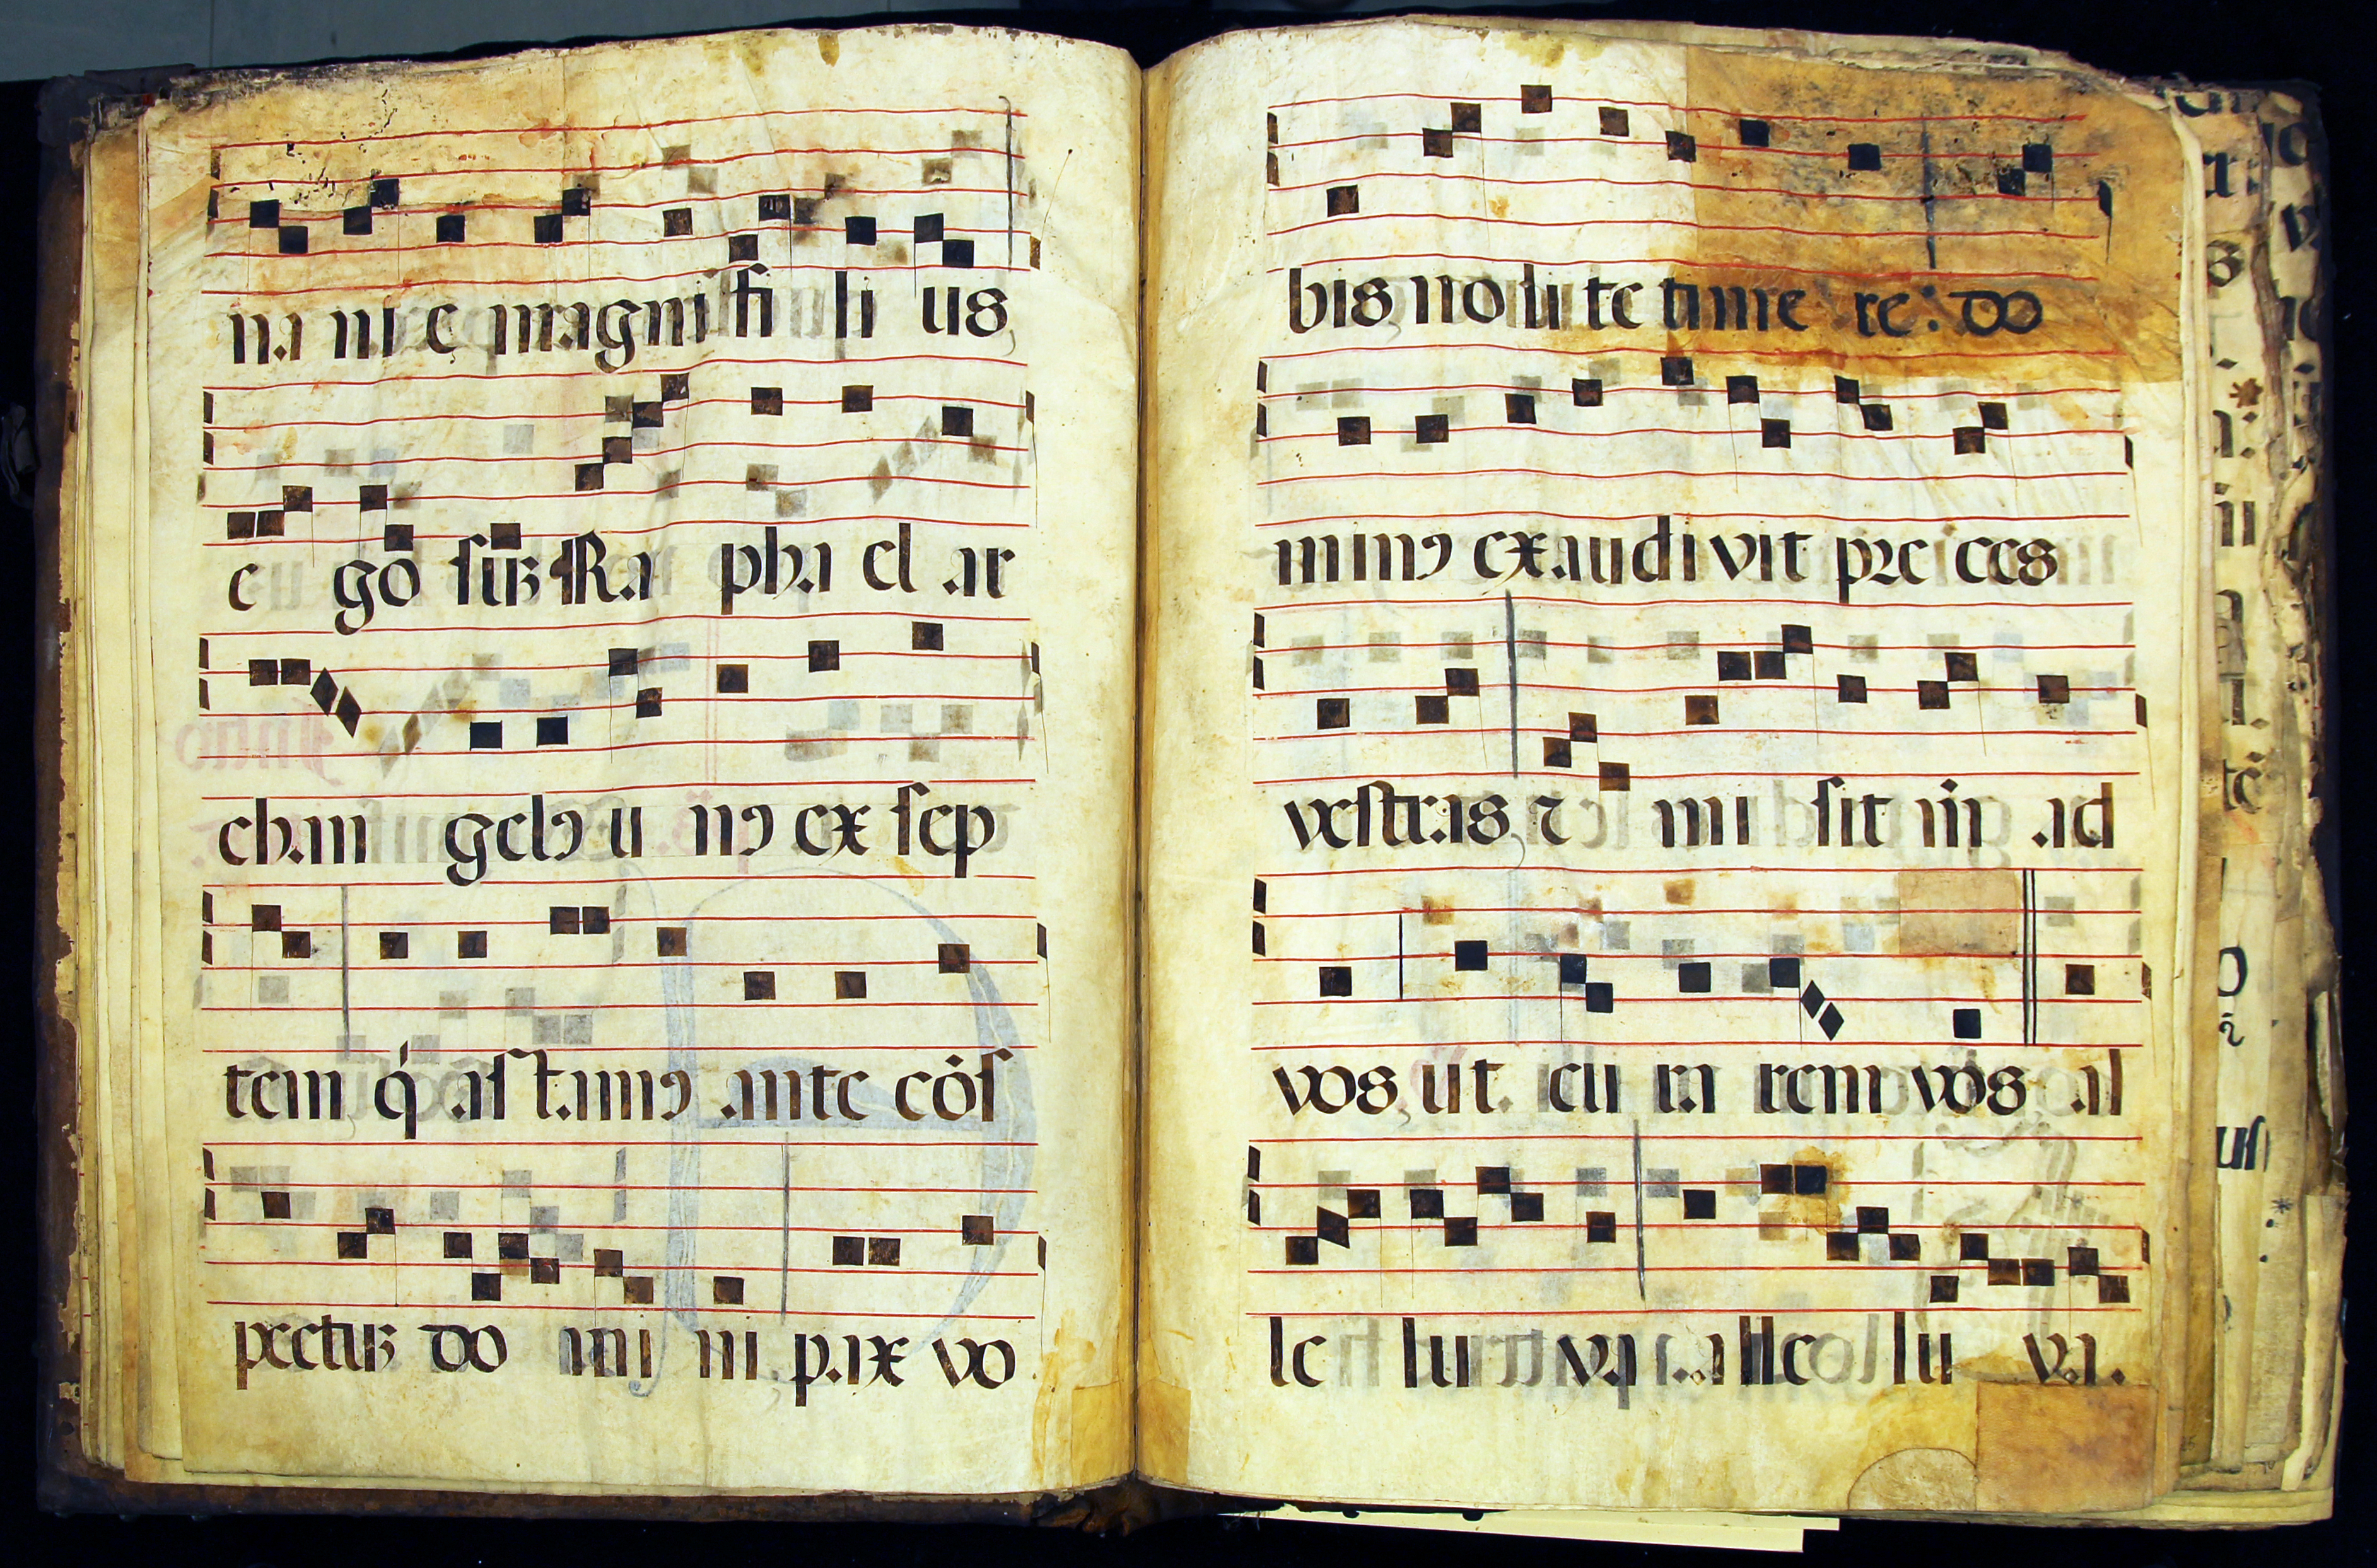 na ni e magni fi li us
e go suꝫ Ra pha el ar
chan gelꝰ u nꝰ ex sep
tem q́ astamꝰ ante cōs
pectuꝫ do mi ni pax vo
bis no li te time re: do
minꝰ exaudivit pre ces
vestras ⁊ mi sit m̄ ad
vos ut cu ra rem vos al
le lu ya alle lu ya.